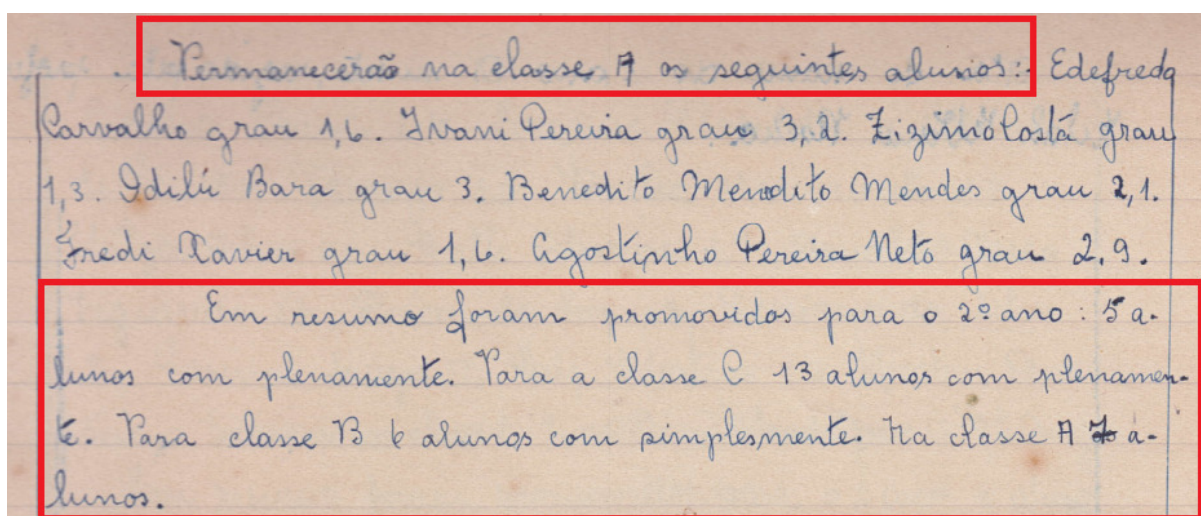 Permanecerão na classe A os seguintes alunos:- Edefreda
Carvalho grau 1,6. Ivani Pereira grau 3,2. Zizimo Costá grau
1,3. Odilú Bara grau 3. Benedito Mendito Mendes grau 2,1.
Fredi Xavier grau 1,6. Agostinho Pereira Neto grau 2,9.
Em resumo foram promovidos para o 2º ano: 5 a-
lunos com plenamente. Para a classe C 13 alunos com plenamen-
te. Para classe B 6 alunos com simplesmente. Na classe A 7 a-
lunos.